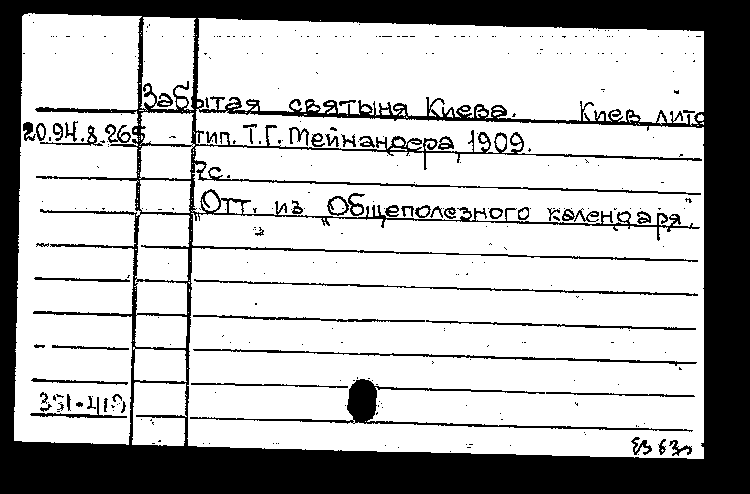 Забытая святыня Киева. Киев, лито
20.94.8.265 - тип. Т.Г. Мейнандера, 1909.
7с.
"Отт. из „Общеполезного календаря".
351-419